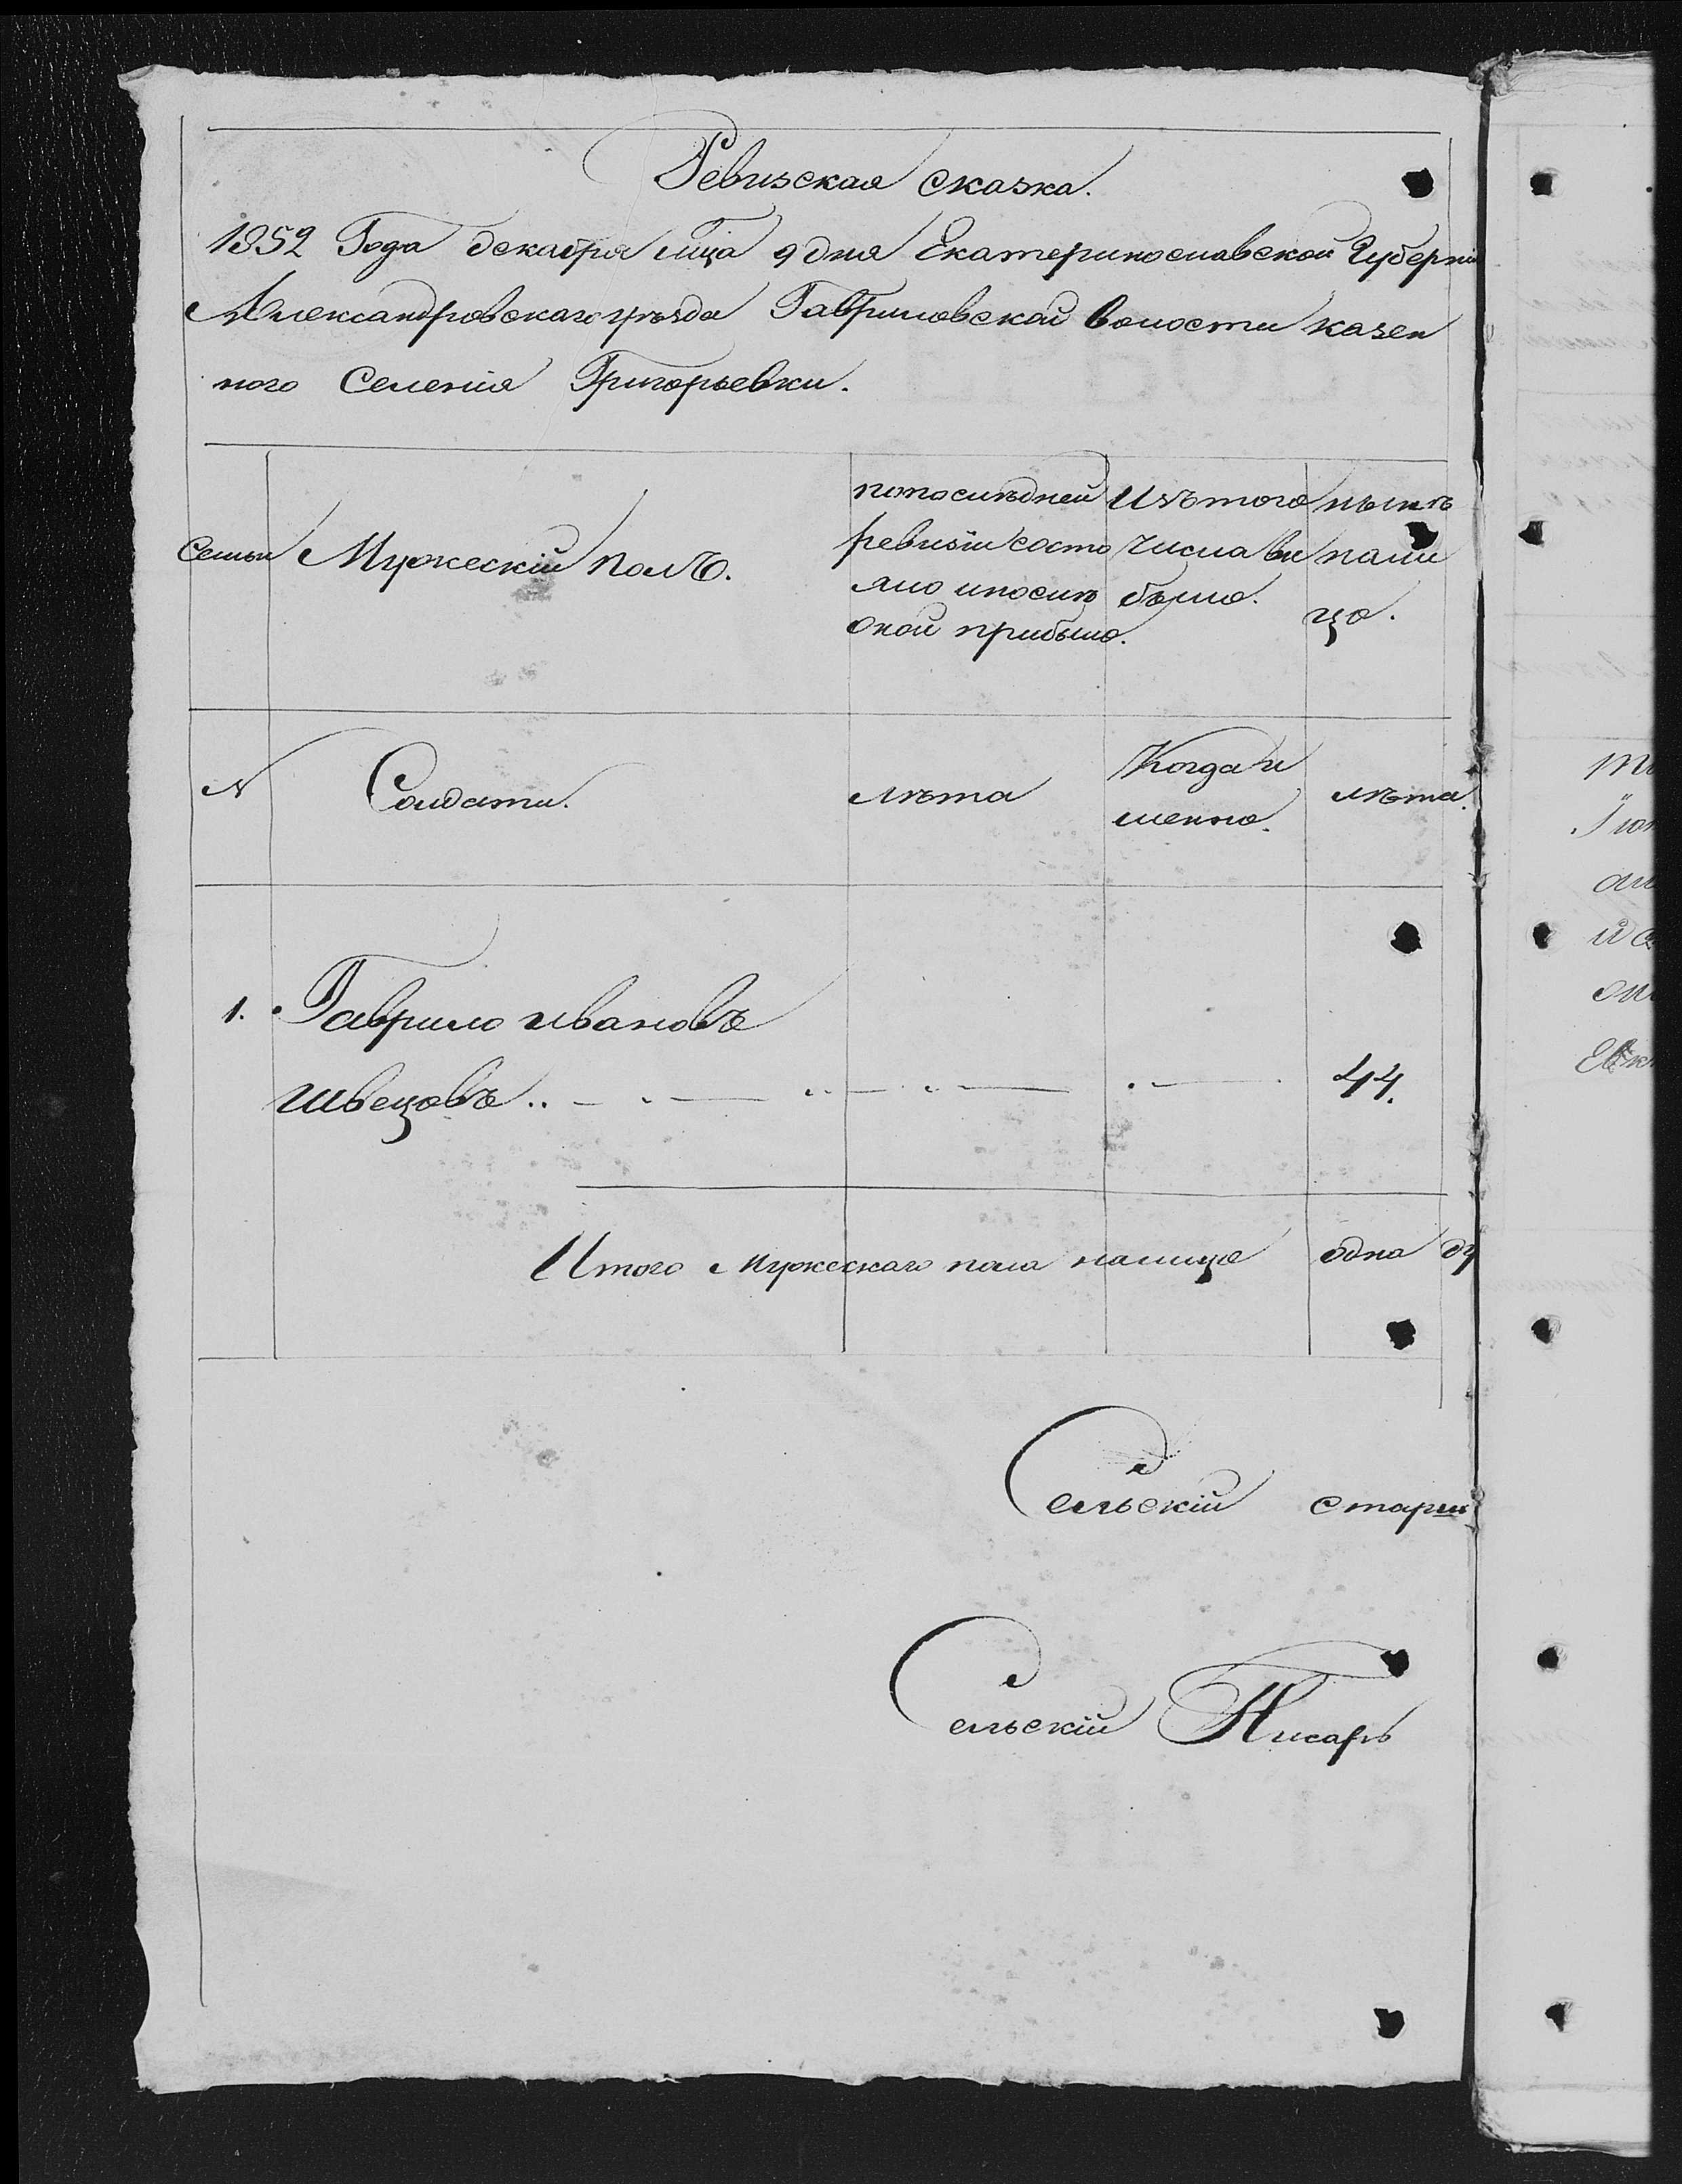 Ревизская сказка.
1852 Года декабря мца 9 дня Екатеринославской Губерніи
Александровскаго уѣзда Гавриловской волости казен
ного Селенія Григорьевки.
Семьи
Мужескій полъ.
по послѣдней
ревизіи состо
яло и послѣ
оной прибыло.
Изъ того
числа вы
было.
нынѣ
нали
цо.
N
Солдаты.
лѣта
Когда и
менно.
лѣта.
1. Гаврило ивановъ
швецовъ .. 44.
Итого мужескаго пола налицо одна ду
Сельскій старш
Сельскій Писарь